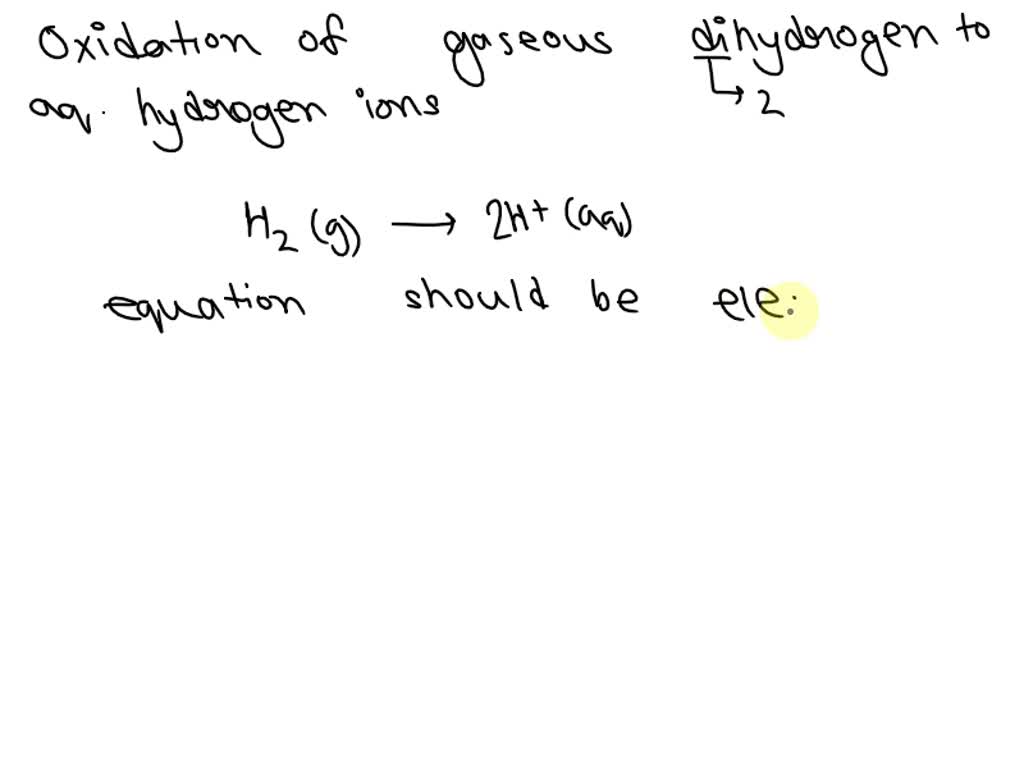 Oxidation of gaseous dihydrogen to
↳ 2
aq. hydrogen ions
H₂ (g) ⟶ 2H+ (aq)
equation should be ele.